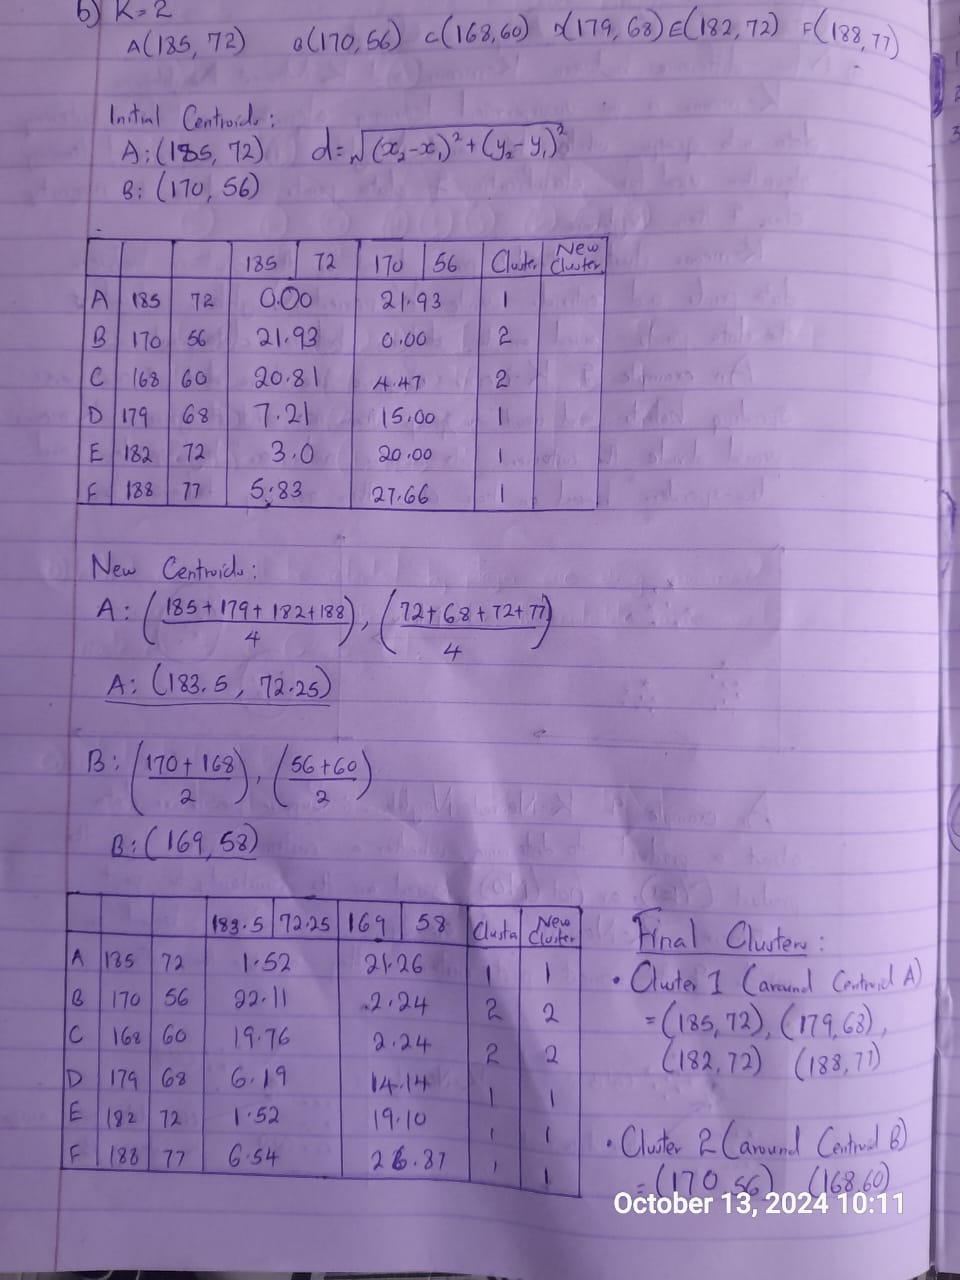 b) K=2
A(185, 72) B(170, 56) C(168,60) D(179, 68) E(182, 72) F(188, 77)
Initial Centroids:
A: (185, 72) d=√(x₂-x₁)²+(y₂-y₁)²
B: (170, 56)
185 72 170 56 Cluster New Cluster
A 185 72 0.00 21.93 1
B 170 56 21.93 0.00 2
C 168 60 20.81 4.47 2
D 179 68 7.21 15.00 1
E 182 72 3.0 20.00 1
F 188 77 5.83 27.66 1
New Centroids:
A: (185+179+182+188/4), (72+68+72+77/4)
A: (183.5, 72.25)
B: (170+168/2), (56+60/2)
B: (169, 58)
183.5 72.25 169 58 Cluster New Cluster
A 185 72 1.52 21.26 1 1
B 170 56 22.11 2.24 2 2
C 168 60 19.76 2.24 2 2
D 179 68 6.19 14.14 1 1
E 182 72 1.52 19.10 1 1
F 188 77 6.54 26.87 1 1
Final Clusters:
• Cluster 1 (around Centroid A)
= (185, 72), (179, 68),
(182, 72) (188, 77)
• Cluster 2 (around Centroid B)
= (170, 56) (168, 60)
October 13, 2024 10:11